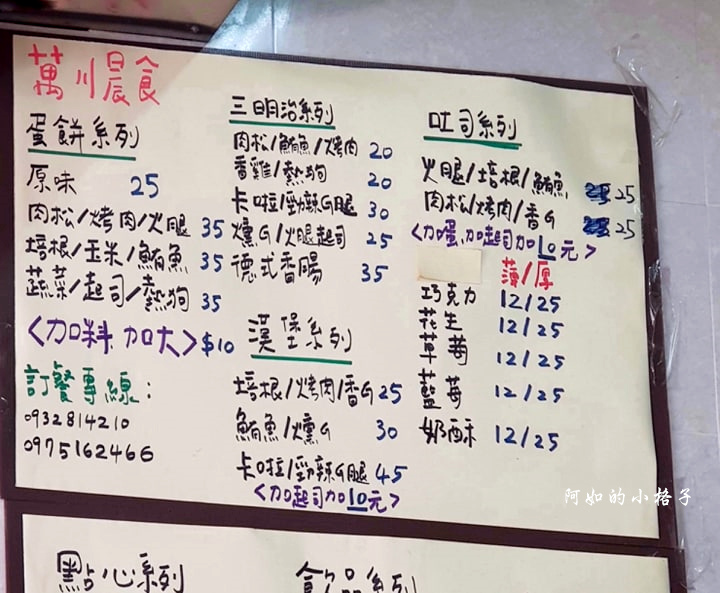 萬川晨食
蛋餅系列
原味 25
肉松/烤肉/火腿 35
培根/玉米/鮪魚 35
蔬菜/起司/熱狗 35
<加料 加大> $10
訂餐專線:
0932814210
0975162466
三明治系列
肉松/鮪魚/烤肉 20
香雞/熱狗 20
卡啦/勁辣G腿 30
燻G/火腿起司 25
德式香腸 35
漢堡系列
培根/烤肉/香G 25
鮪魚/燻G 30
卡啦/勁辣G腿 45
<加起司加10元>
吐司系列
火腿/培根/鮪魚 25
肉松/烤肉/香G 25
<加蛋.加起司加10元>
薄/厚
巧克力 12/25
花生 12/25
草莓 12/25
藍莓 12/25
奶酥 12/25
阿如的小格子
點心系列
飲品系列